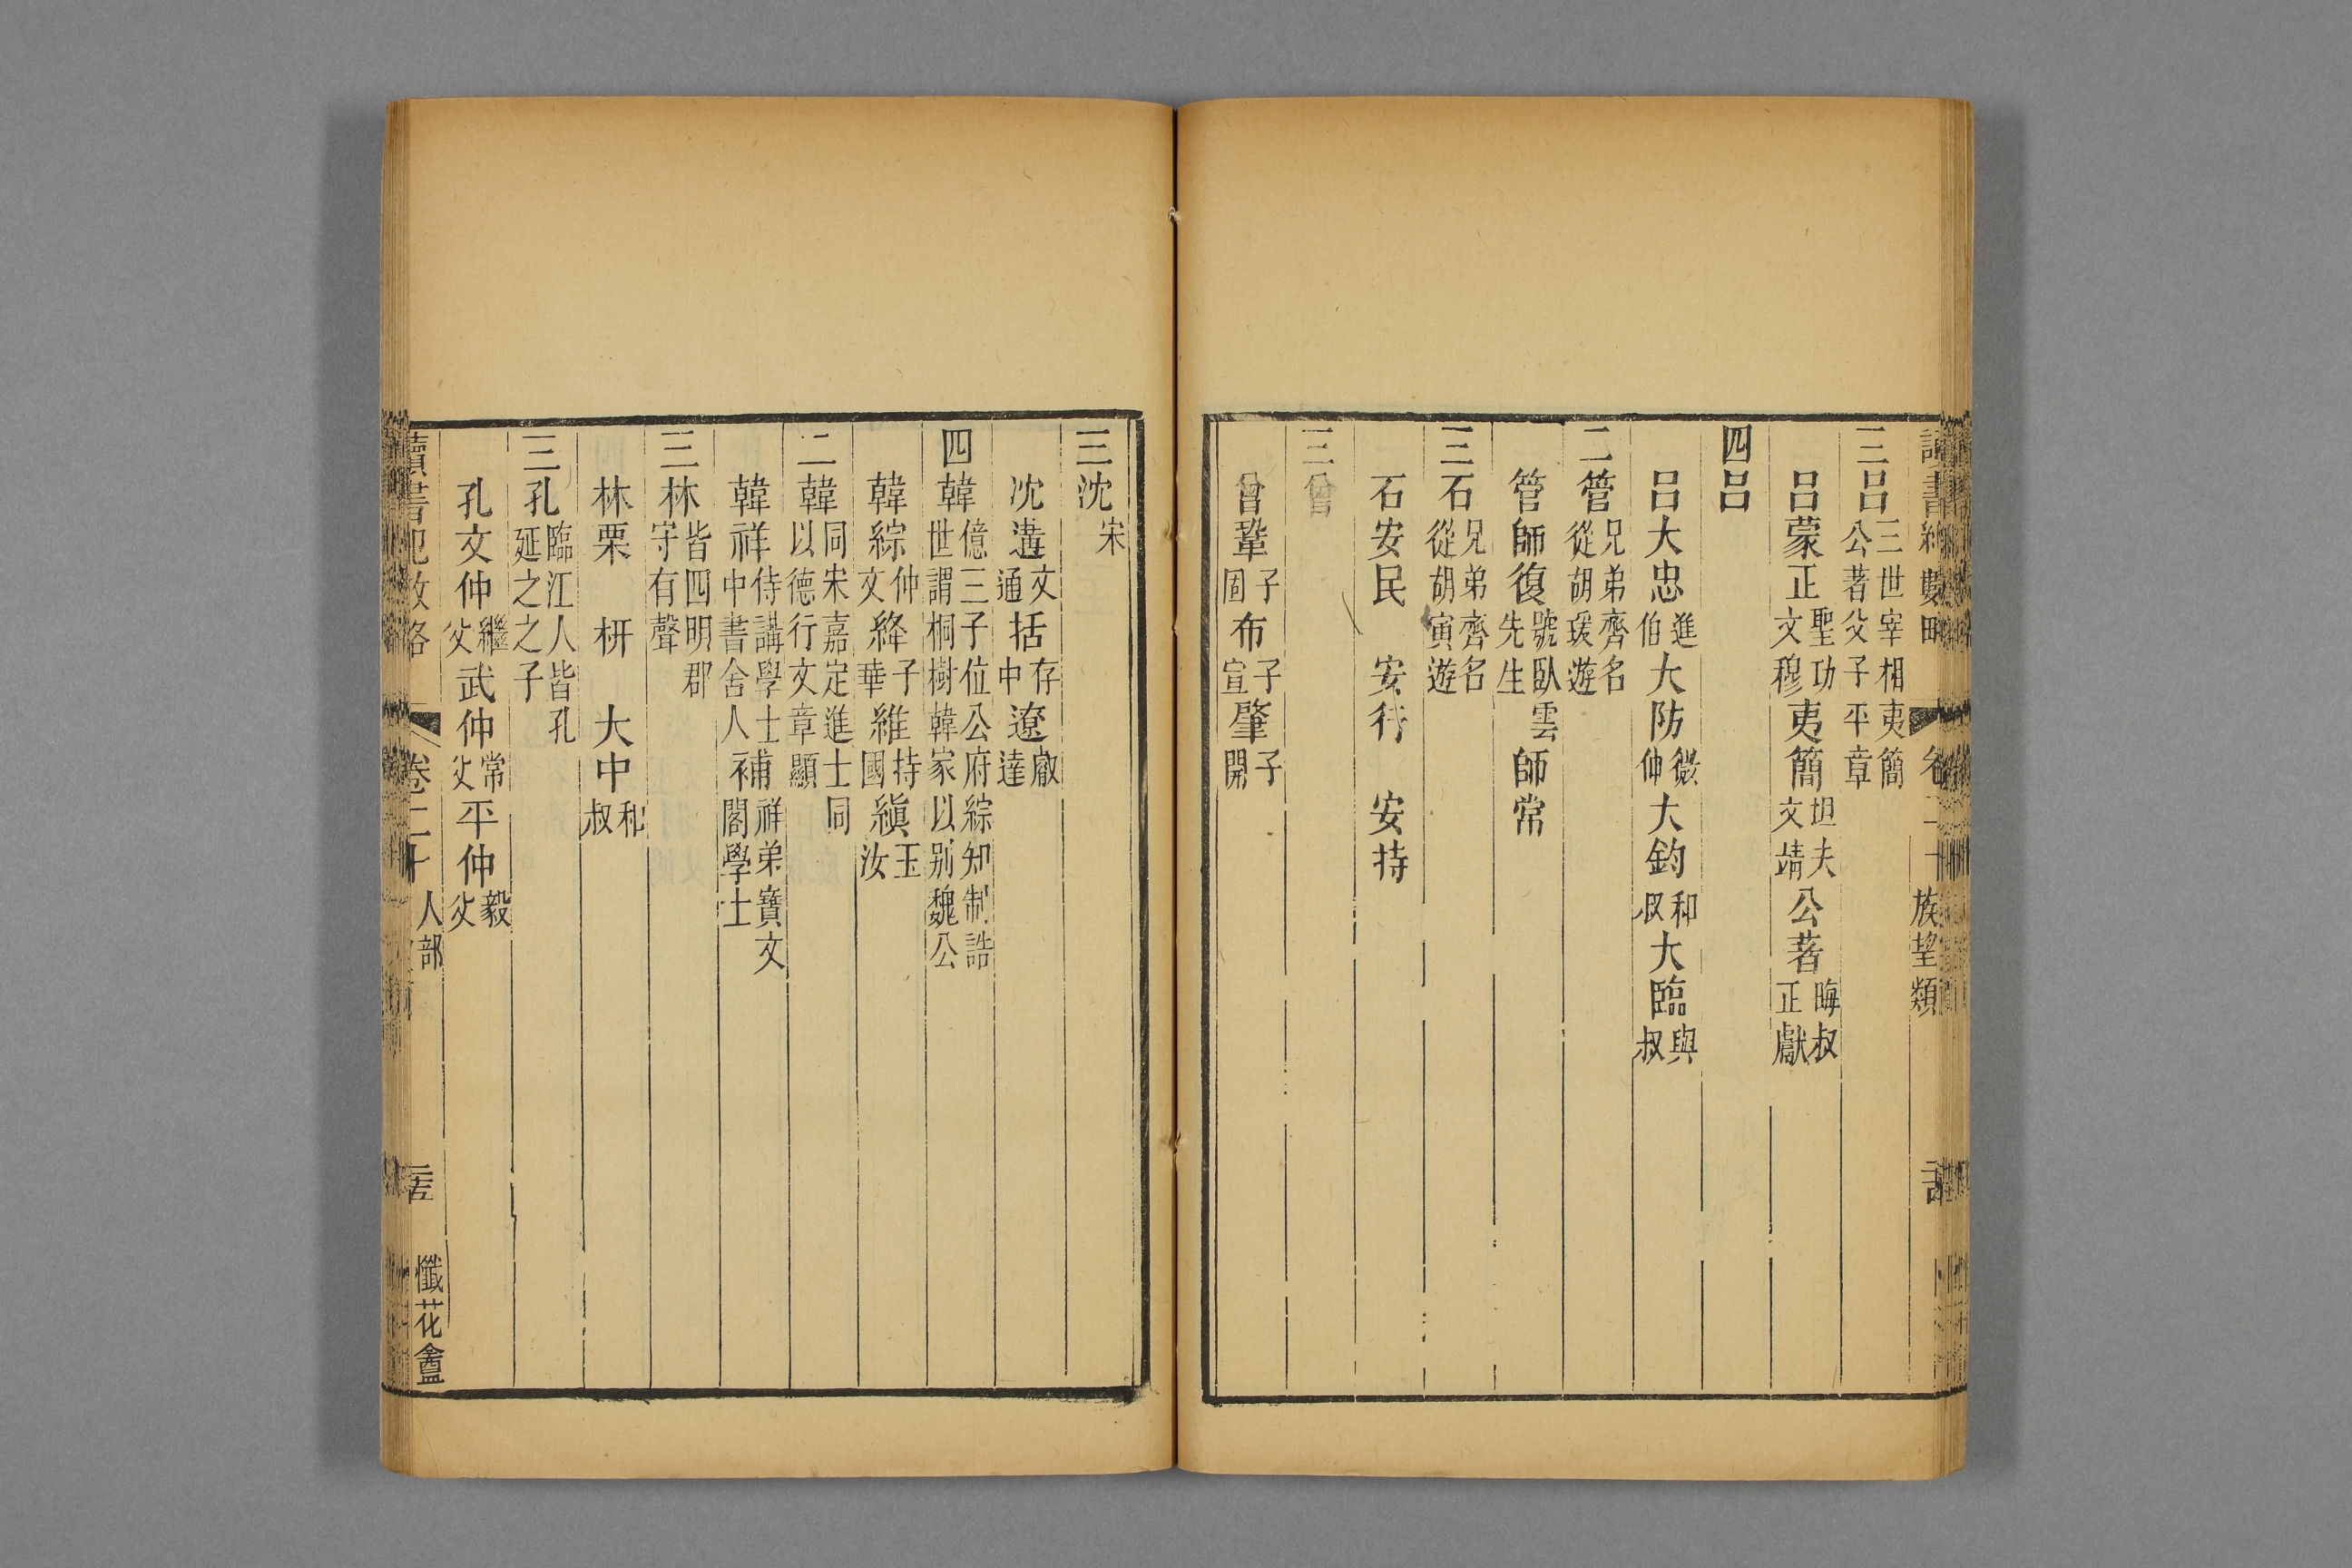 讀書紀數略 卷二十 族望類
三呂 三世宰相夷簡公著父子平章
呂蒙正 聖功文穆 夷簡 坦夫文靖 公著 晦叔正獻
四呂
呂大忠 進伯 大防 微仲 大鈞 和叔 大臨 與叔
二管 兄弟齊名從胡瑗遊
管師復 號臥雲先生 師常
三石 兄弟齊名從胡寅遊
石安民 安行 安持
三曾
曾鞏 子固 布 子宣 肇 子開
三沈 宋
沈遘 文通 括 存中 遼 叡達
四韓 億三子位公府綜知制誥世謂桐樹韓家以别魏公
韓綜 仲文 絳 子華 維 持國 縝 玉汝
二韓 同宋嘉定進士同以德行文章顯
韓祥 侍講學士中書舍人 補 祥弟寶文閣學士
三林 皆四明郡守有聲
林栗 枅 大中 和叔
三孔 臨江人皆孔延之之子
孔文仲 經父 武仲 常父 平仲 毅父
讀書紀數略 卷二十 人部 二五 懺花盦